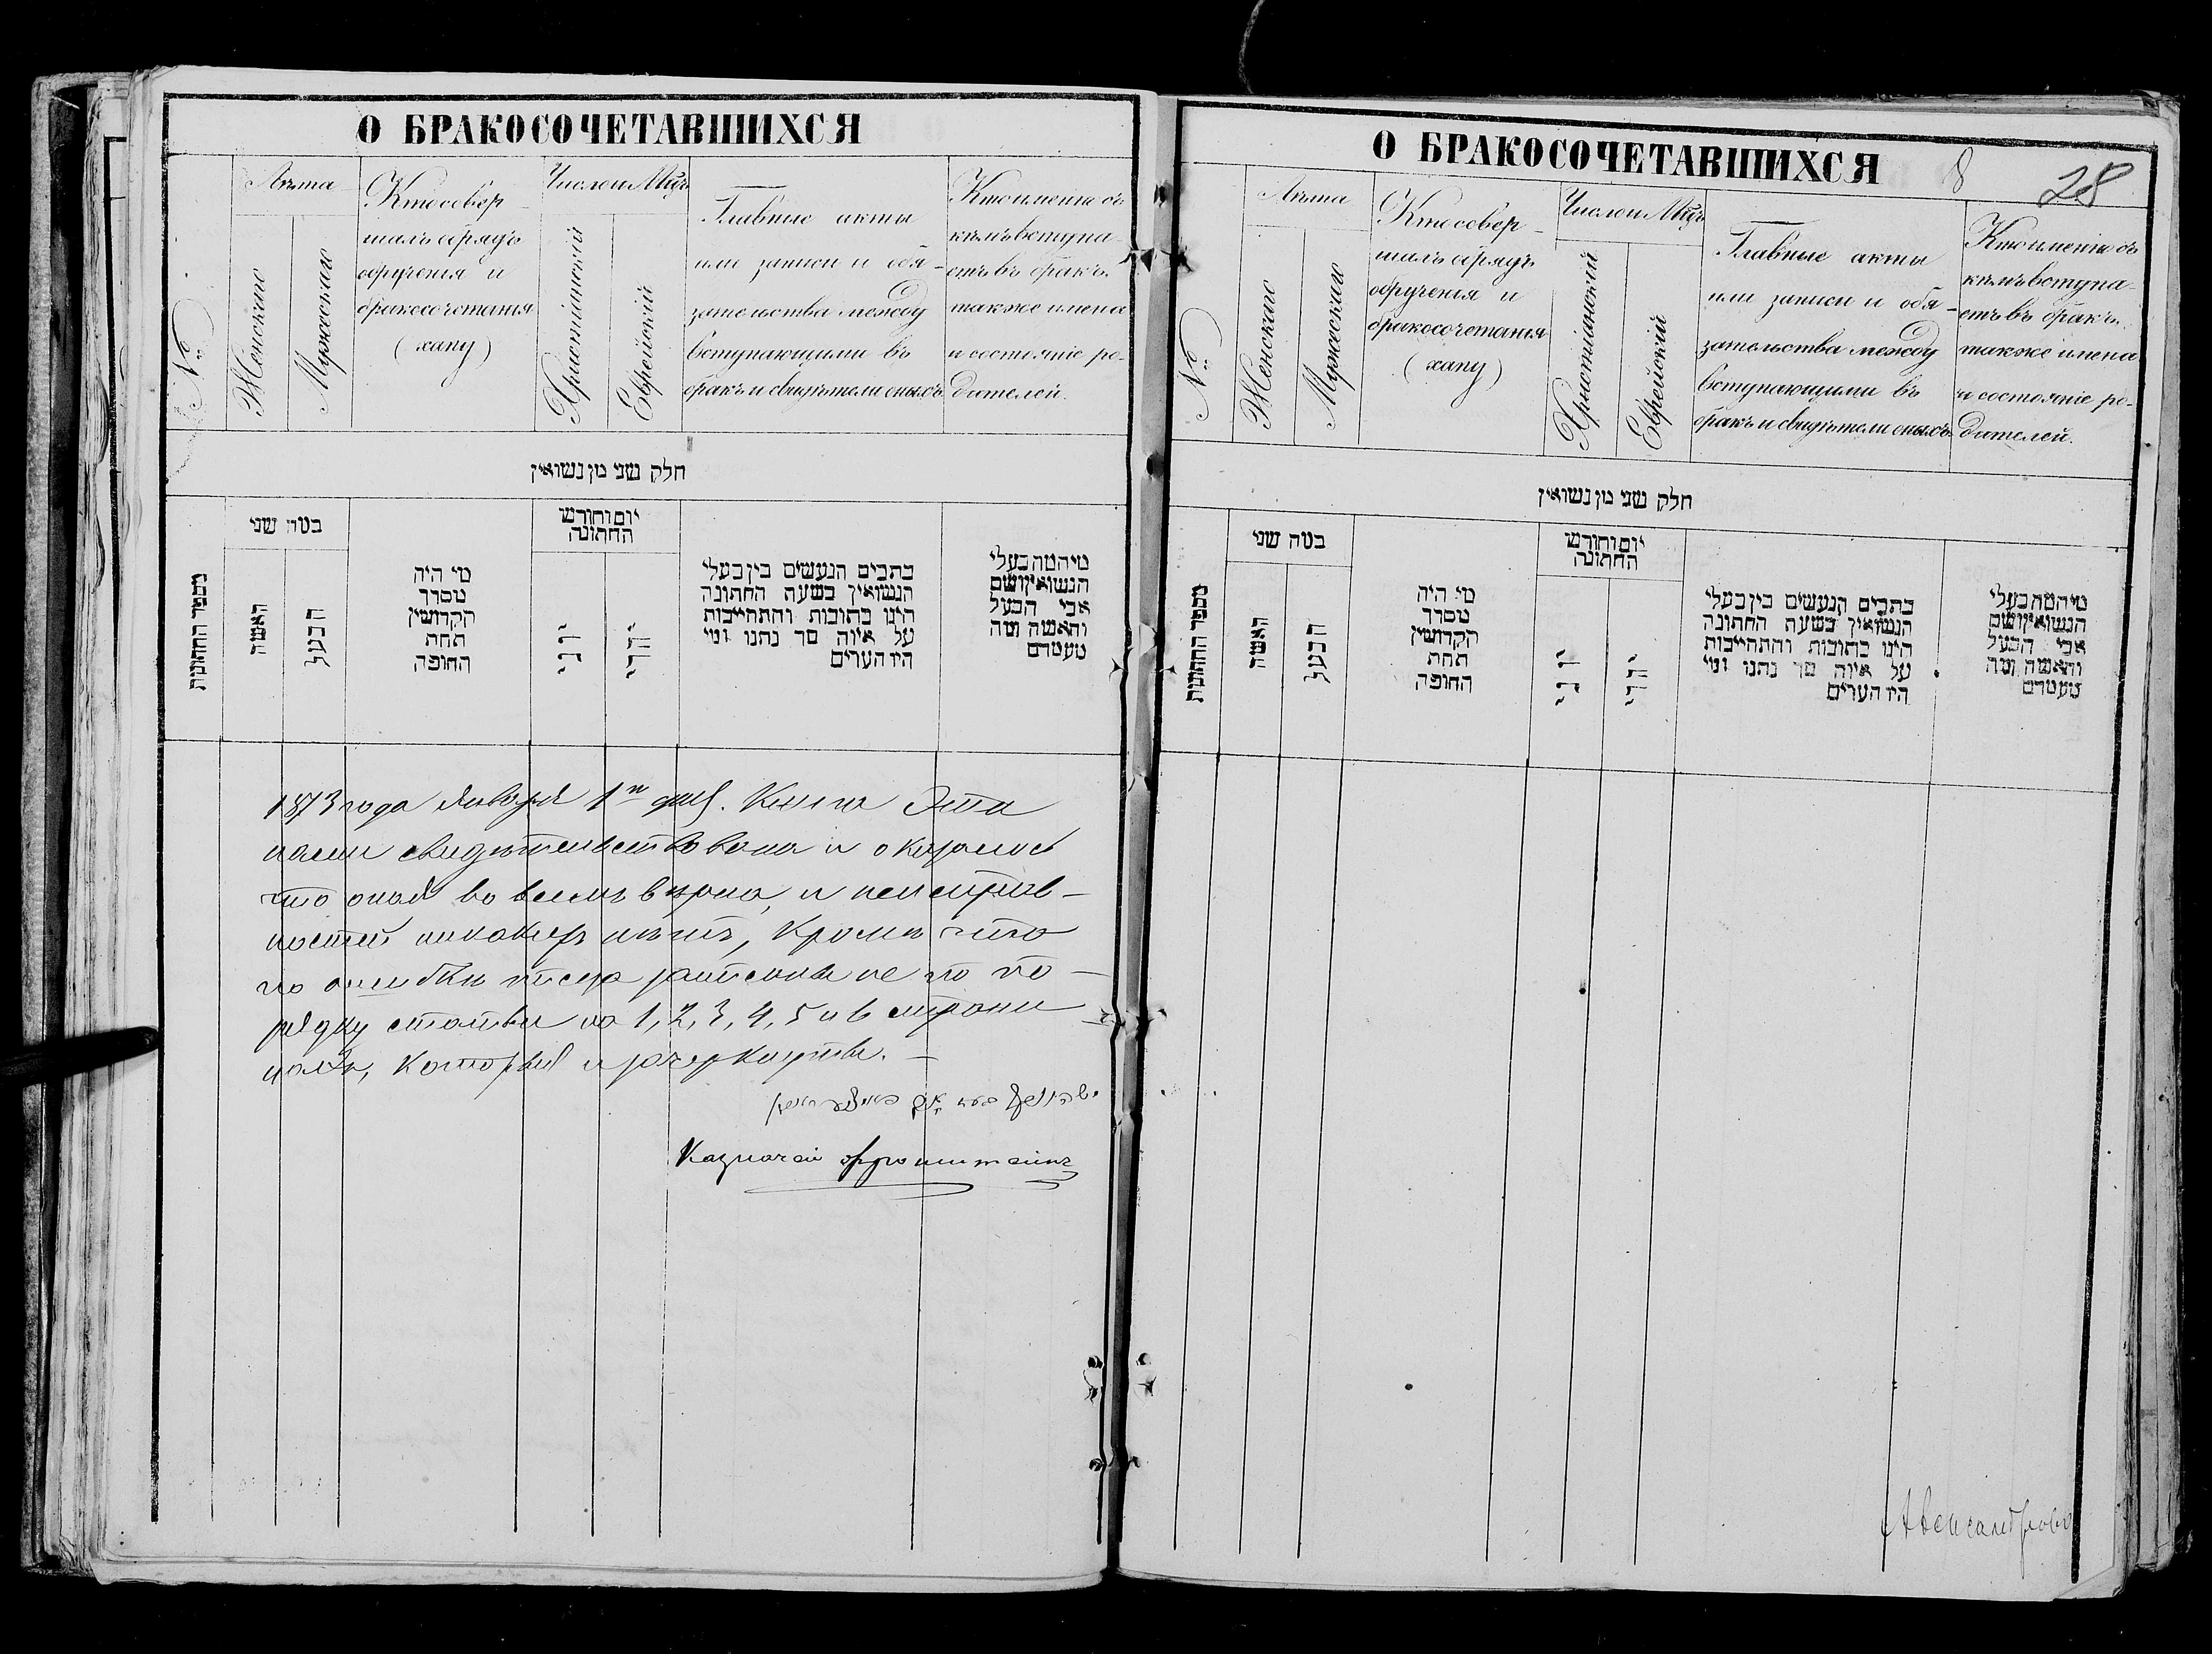 О БРАКОСОЧЕТАВШИХСЯ
№
Лѣта
Женскаго
Мужескаго
Кто совер-
шалъ обрядъ
обрученія и
бракосочетанія
(хапу)
Число и Мѣцъ
Христіанскій
Еврейскій
Главные акты
или записи и обя-
зательства между
вступающими въ
бракъ и свидѣтели оныхъ
Кто именно съ
кѣмъ вступа-
етъ въ бракъ,
также имена
и состояніе ро-
дителей.
חלק שני מן נשואין
מספר החתונות
כמה שני
האשה
הבעל
מי היה
מסדר
הקדושין
תחת
החופה
יום וחודש
החתונה
יוני
יהדי
כתבים הנעשים בין בעלי
הנשואין בשעה החתונה
הינו כתובות והתחייבות
על איזה סך נתנו ומי
היו הערים
מי המה בעלי
הנשואין ושם
אבי הבעל
והאשה ומה
מעמדם
1873 года Января 1го дня. Книга Эта
нами свидѣтельствована и оказалось
что оная во всемъ вѣрна, и неисправ-
ностей никакихъ нѣтъ, кромѣ что
по ошибки писца записаны не по по-
рядку статьи на 1, 2, 3, 4, 5 и 6 страни-
цахъ, которыя и зачеркнуты. —
Казначей
О БРАКОСОЧЕТАВШИХСЯ
8
28
№
Лѣта
Женскаго
Мужескаго
Кто совер-
шалъ обрядъ
обрученія и
бракосочетанія
(хапу)
Число и Мѣцъ
Христіанскій
Еврейскій
Главные акты
или записи и обя-
зательства между
вступающими въ
бракъ и свидѣтели оныхъ
Кто именно съ
кѣмъ вступа-
етъ въ бракъ,
также имена
и состояніе ро-
дителей.
חלק שני מן נשואין
מספר החתונות
כמה שני
האשה
הבעל
מי היה
מסדר
הקדושין
תחת
החופה
יום וחודש
החתונה
יוני
יהדי
כתבים הנעשים בין בעלי
הנשואין בשעה החתונה
הינו כתובות והתחייבות
על איזה סך נתנו ומי
היו הערים
מי המה בעלי
הנשואין ושם
אבי הבעל
והאשה ומה
מעמדם